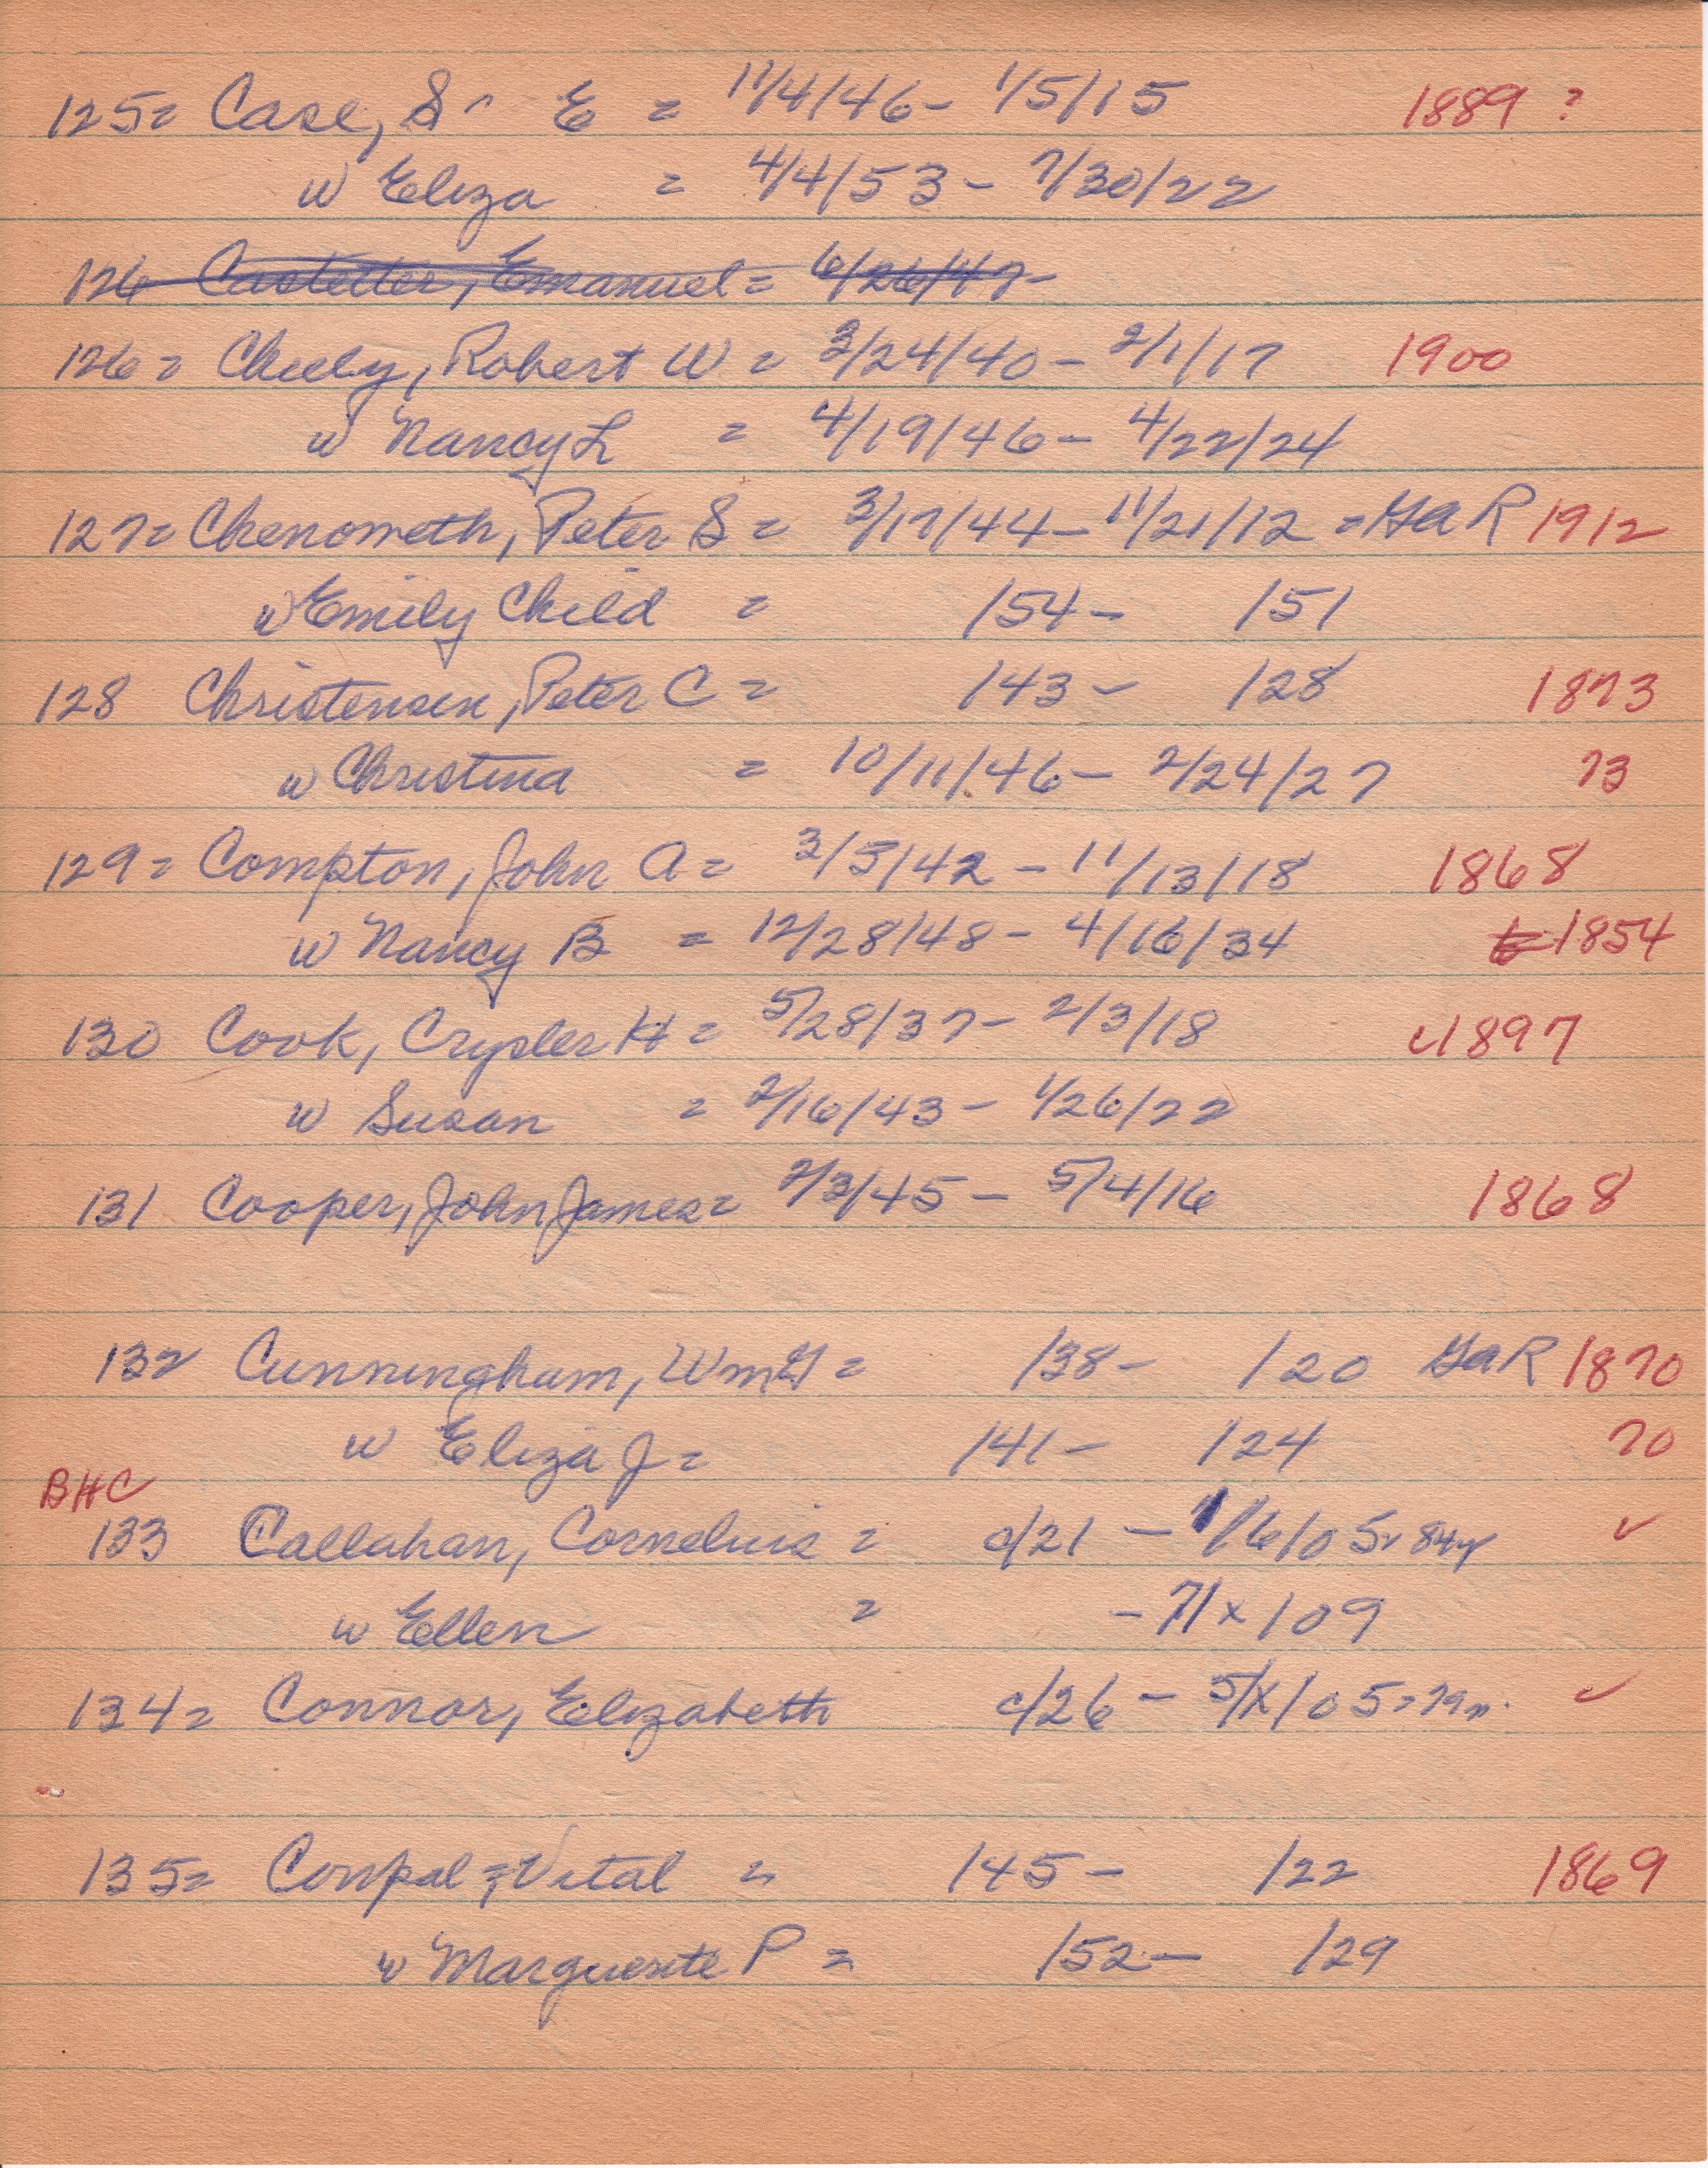 125= Case, S E = 11/4/46 - 1/5/15 1889 ?
w Eliza = 4/4/53 - 7/30/22
126 Castetter, Emanuel = 6/26/47-
126 = Cheely, Robert W = 3/24/40 - 2/1/17 1900
w Nancy L = 4/19/46 - 4/22/24
127= Chenoweth, Peter S = 3/17/44 - 11/21/12 = GaR 1912
w Emily Child = /54 - /51
128 Christensen, Peter C = /43 - /28 1873
w Christina = 10/11/46 - 2/24/27 73
129 = Compton, John A = 3/5/42 - 11/13/18 1868
w Nancy B = 12/28/48 - 4/16/34 1854
130 Cook, Crysler H = 5/28/37 - 2/3/18 ✓1897
w Susan = 2/16/43 - 1/26/22
131 Cooper, John James = 2/3/45 - 5/4/16 1868
132 Cunningham, Wm G = /38 - /20 GaR 1870
w Eliza J = /41 - /24 70
BHC
133 Callahan, Cornelius = c/21 - 1/6/05= 84y ✓
w Ellen = - 7/x/09
134 = Connor, Elizabeth c/26 - 5/X/05 = 79y ✓
135= Vital = /45 - /22 1869
w Marguerite P = /52 - /29